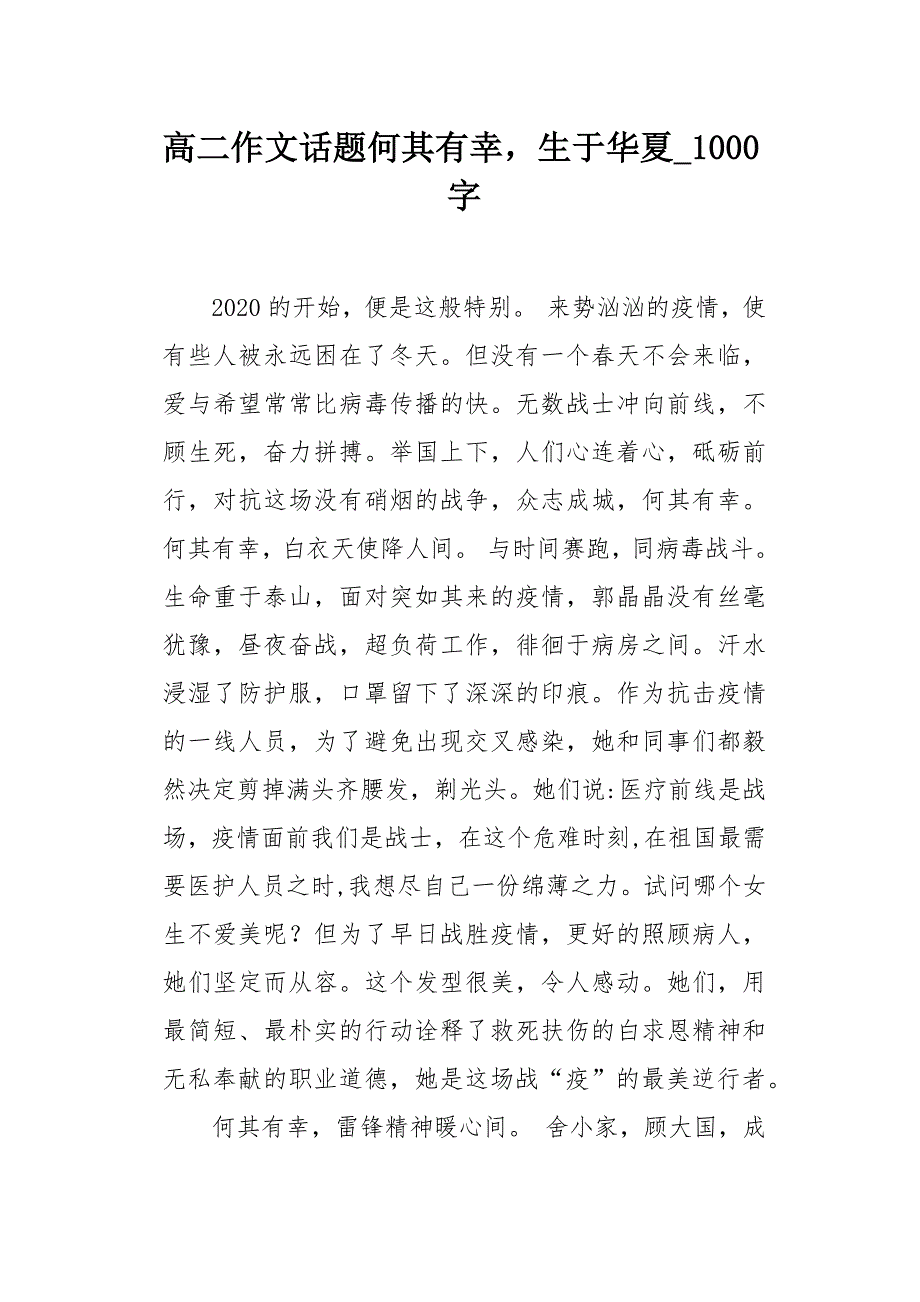 高二作文话题何其有幸，生于华夏_1000
字
2020的开始，便是这般特别。 来势汹汹的疫情，使
有些人被永远困在了冬天。但没有一个春天不会来临，
爱与希望常常比病毒传播的快。无数战士冲向前线，不
顾生死，奋力拼搏。举国上下，人们心连着心，砥砺前
行，对抗这场没有硝烟的战争，众志成城，何其有幸。
何其有幸，白衣天使降人间。 与时间赛跑，同病毒战斗。
生命重于泰山，面对突如其来的疫情，郭晶晶没有丝毫
犹豫，昼夜奋战，超负荷工作，徘徊于病房之间。汗水
浸湿了防护服，口罩留下了深深的印痕。作为抗击疫情
的一线人员，为了避免出现交叉感染，她和同事们都毅
然决定剪掉满头齐腰发，剃光头。她们说:医疗前线是战
场，疫情面前我们是战士，在这个危难时刻,在祖国最需
要医护人员之时,我想尽自己一份绵薄之力。试问哪个女
生不爱美呢？但为了早日战胜疫情，更好的照顾病人，
她们坚定而从容。这个发型很美，令人感动。她们，用
最简短、最朴实的行动诠释了救死扶伤的白求恩精神和
无私奉献的职业道德，她是这场战“疫”的最美逆行者。
何其有幸，雷锋精神暖心间。 舍小家，顾大国，成